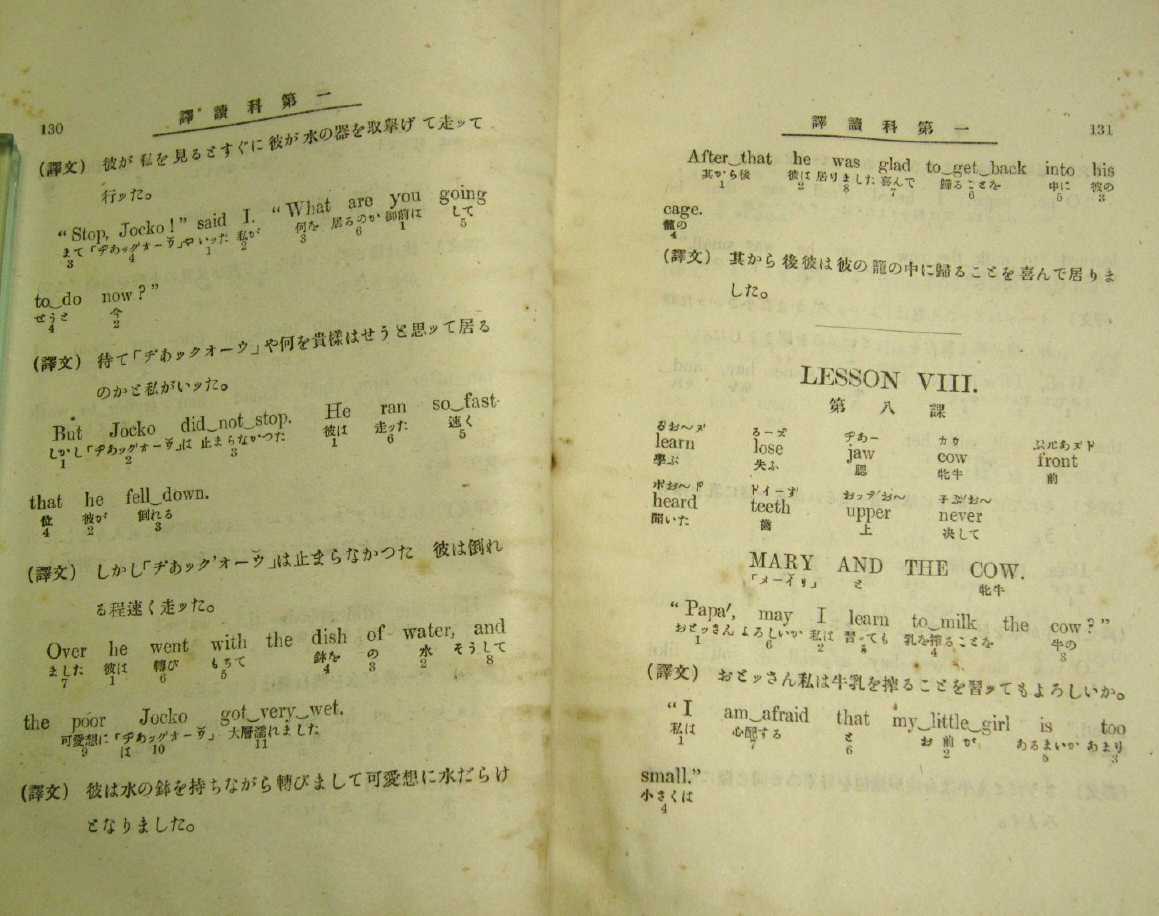 130
譯讀科第一
(譯文) 彼が私を見るとすぐに彼が水の器を取擧げて走ッて
行ッた。
“Stop, Jocko!” said I. “What are you going
まて 「ヂあッグオーウ」や いッた 私が 何を 居るのか 御前は して
3 4 1 2 3 6 1 5
to do now?”
せうと 今
4 2
(譯文) 待て「ヂあックオーウ」や何を貴樣はせうと思ッて居る
のかと私がいッた。
But Jocko did not stop. He ran so fast
しかし 「ヂあッグオーウ」は 止まらなかつた 彼は 走ッた 速く
1 2 3 1 6 5
that he fell down.
位 彼が 倒れる
4 2 3
(譯文) しかし「ヂあック'オーウ」は止まらなかつた 彼は倒れ
る程速く走ッた。
Over he went with the dish of water, and
ました 彼は 轉び もちて 鉢を の 水 そうして
7 1 6 5 4 3 2 8
the poor Jocko got very wet.
可愛想に 「ヂあッグオーウ」は 大層濡れました
9 10 11
(譯文) 彼は水の鉢を持ちながら轉びまして可愛想に水だらけ
となりました。
譯讀科第一
131
After that he was glad to get back into his
其から後 彼は 居りました 喜んで 歸ることを 中に 彼の
1 2 8 7 6 5 3
cage.
籠の
4
(譯文) 其から後彼は彼の籠の中に歸ることを喜んで居りま
した。
LESSON VIII.
第八課
るーズ ヂあー カウ
learn lose jaw cow front
學ぶ 失ふ 腮 牝牛 前
heard teeth upper never
聞いた 齒 上 决して
MARY AND THE COW.
「メーイリ」 と 牝牛
“Papa', may I learn to milk the cow?”
おとッさん よろしいか 私は 習ッても 乳を搾ることを 牛の
1 6 2 5 4 3
(譯文) おとッさん私は牛乳を搾ることを習ッてもよろしいか。
“I am afraid that my little girl is too
私は 心配する と お前が あるまいか あまり
1 7 6 2 5 3
small.”
小さくは
4